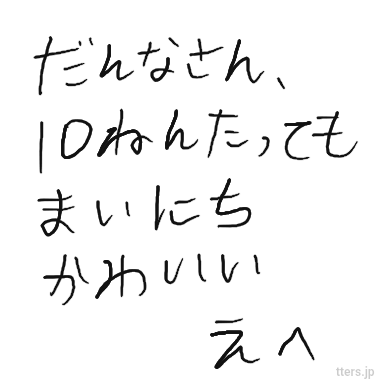 だんなさん、
10ねんたっても
まいにち
かわいい
えへ
tters.jp